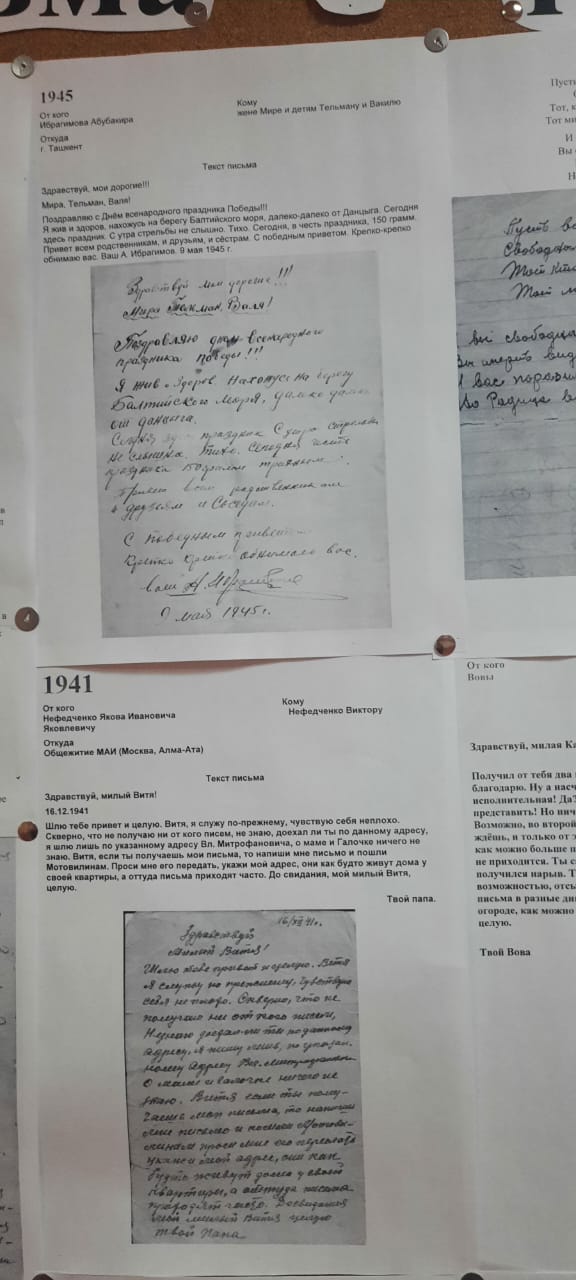 1945
От кого
Ибрагимова Абубакира
Кому
жене Мире и детям Тельману и Вакилю
Откуда
г. Ташкент
Текст письма
Здравствуй, мои дорогие!!!
Мира, Тельман, Валя!
Поздравляю с Днём всенародного праздника Победы!!!
Я жив и здоров, нахожусь на берегу Балтийского моря, далеко-далеко от Данцыга. Сегодня
здесь праздник. С утра стрельбы не слышно. Тихо. Сегодня, в честь праздника, 150 грамм.
Привет всем родственникам, и друзьям, и сёстрам. С победным приветом. Крепко-крепко
обнимаю вас. Ваш А. Ибрагимов. 9 мая 1945 г.
Здравствуй мои дорогие!!!
Мира Тельман, Валя!
Поздравляю днём всенародного
праздника победы!!!
Я жив и здоров. Нахожусь на берегу
Балтийского моря, далеко
от данцыга.
праздник С утра
не слышно. Тихо. Сегодня
праздника
Привет всем родственникам
и друзьям и
С победным
Крепко обнимаю вас.
ваш А. Ибрагимов
9 май 1945г.
Пусти
Тот, к
Тот ми
И
Вы
Н
Пусть
Свободны
Тот
Той
вы свободны
вас
1941
От кого
Нефедченко Якова Ивановича
Яковлевичу
Кому
Нефедченко Виктору
Откуда
Общежитие МАИ (Москва, Алма-Ата)
Текст письма
Здравствуй, милый Витя!
16.12.1941
Шлю тебе привет и целую. Витя, я служу по-прежнему, чувствую себя неплохо.
Скверно, что не получаю ни от кого писем, не знаю, доехал ли ты по данному адресу,
я шлю лишь по указанному адресу Вл. Митрофановича, о маме и Галочке ничего не
знаю. Витя, если ты получаешь мои письма, то напиши мне письмо и пошли
Мотовилинам. Проси мне его передать, укажи мой адрес, они как будто живут дома у
своей квартиры, а оттуда письма приходят часто. До свидания, мой милый Витя,
целую.
Твой папа.
16/XII 41г.
Здравствуй
милый Витя!
Шлю тебе привет и целую. Витя
я служу по прежнему, чувствую
себя не плохо. Скверно, что не
получаю ни от кого писем,
Незнаю доехал ли ты по данному
адресу, я пишу лишь, по указан.
ному адресу Вл.
О маме и Галочке ничего не
знаю. Витя если ты полу-
чаешь мои письма, то напиши
мне письмо и пошли Мотови-
линам проси мне его передать
укажи мой адрес, они как
будто живут дома у своей
квартиры, а оттуда письма
приходят часто. Досвидания
мой милый Витя целую
твой папа
От кого
Вовы
Здравствуй, милая Ка
Получил от тебя два
благодарю. Ну а насч
исполнительная! Да?
представить! Но нич
Возможно, во второй
ждёшь, и только от э
как можно больше п
не приходится. Ты с
получился нарыв. Т
возможностью, отсы
письма в разные дни
огороде, как можно
целую.
Твой Вова